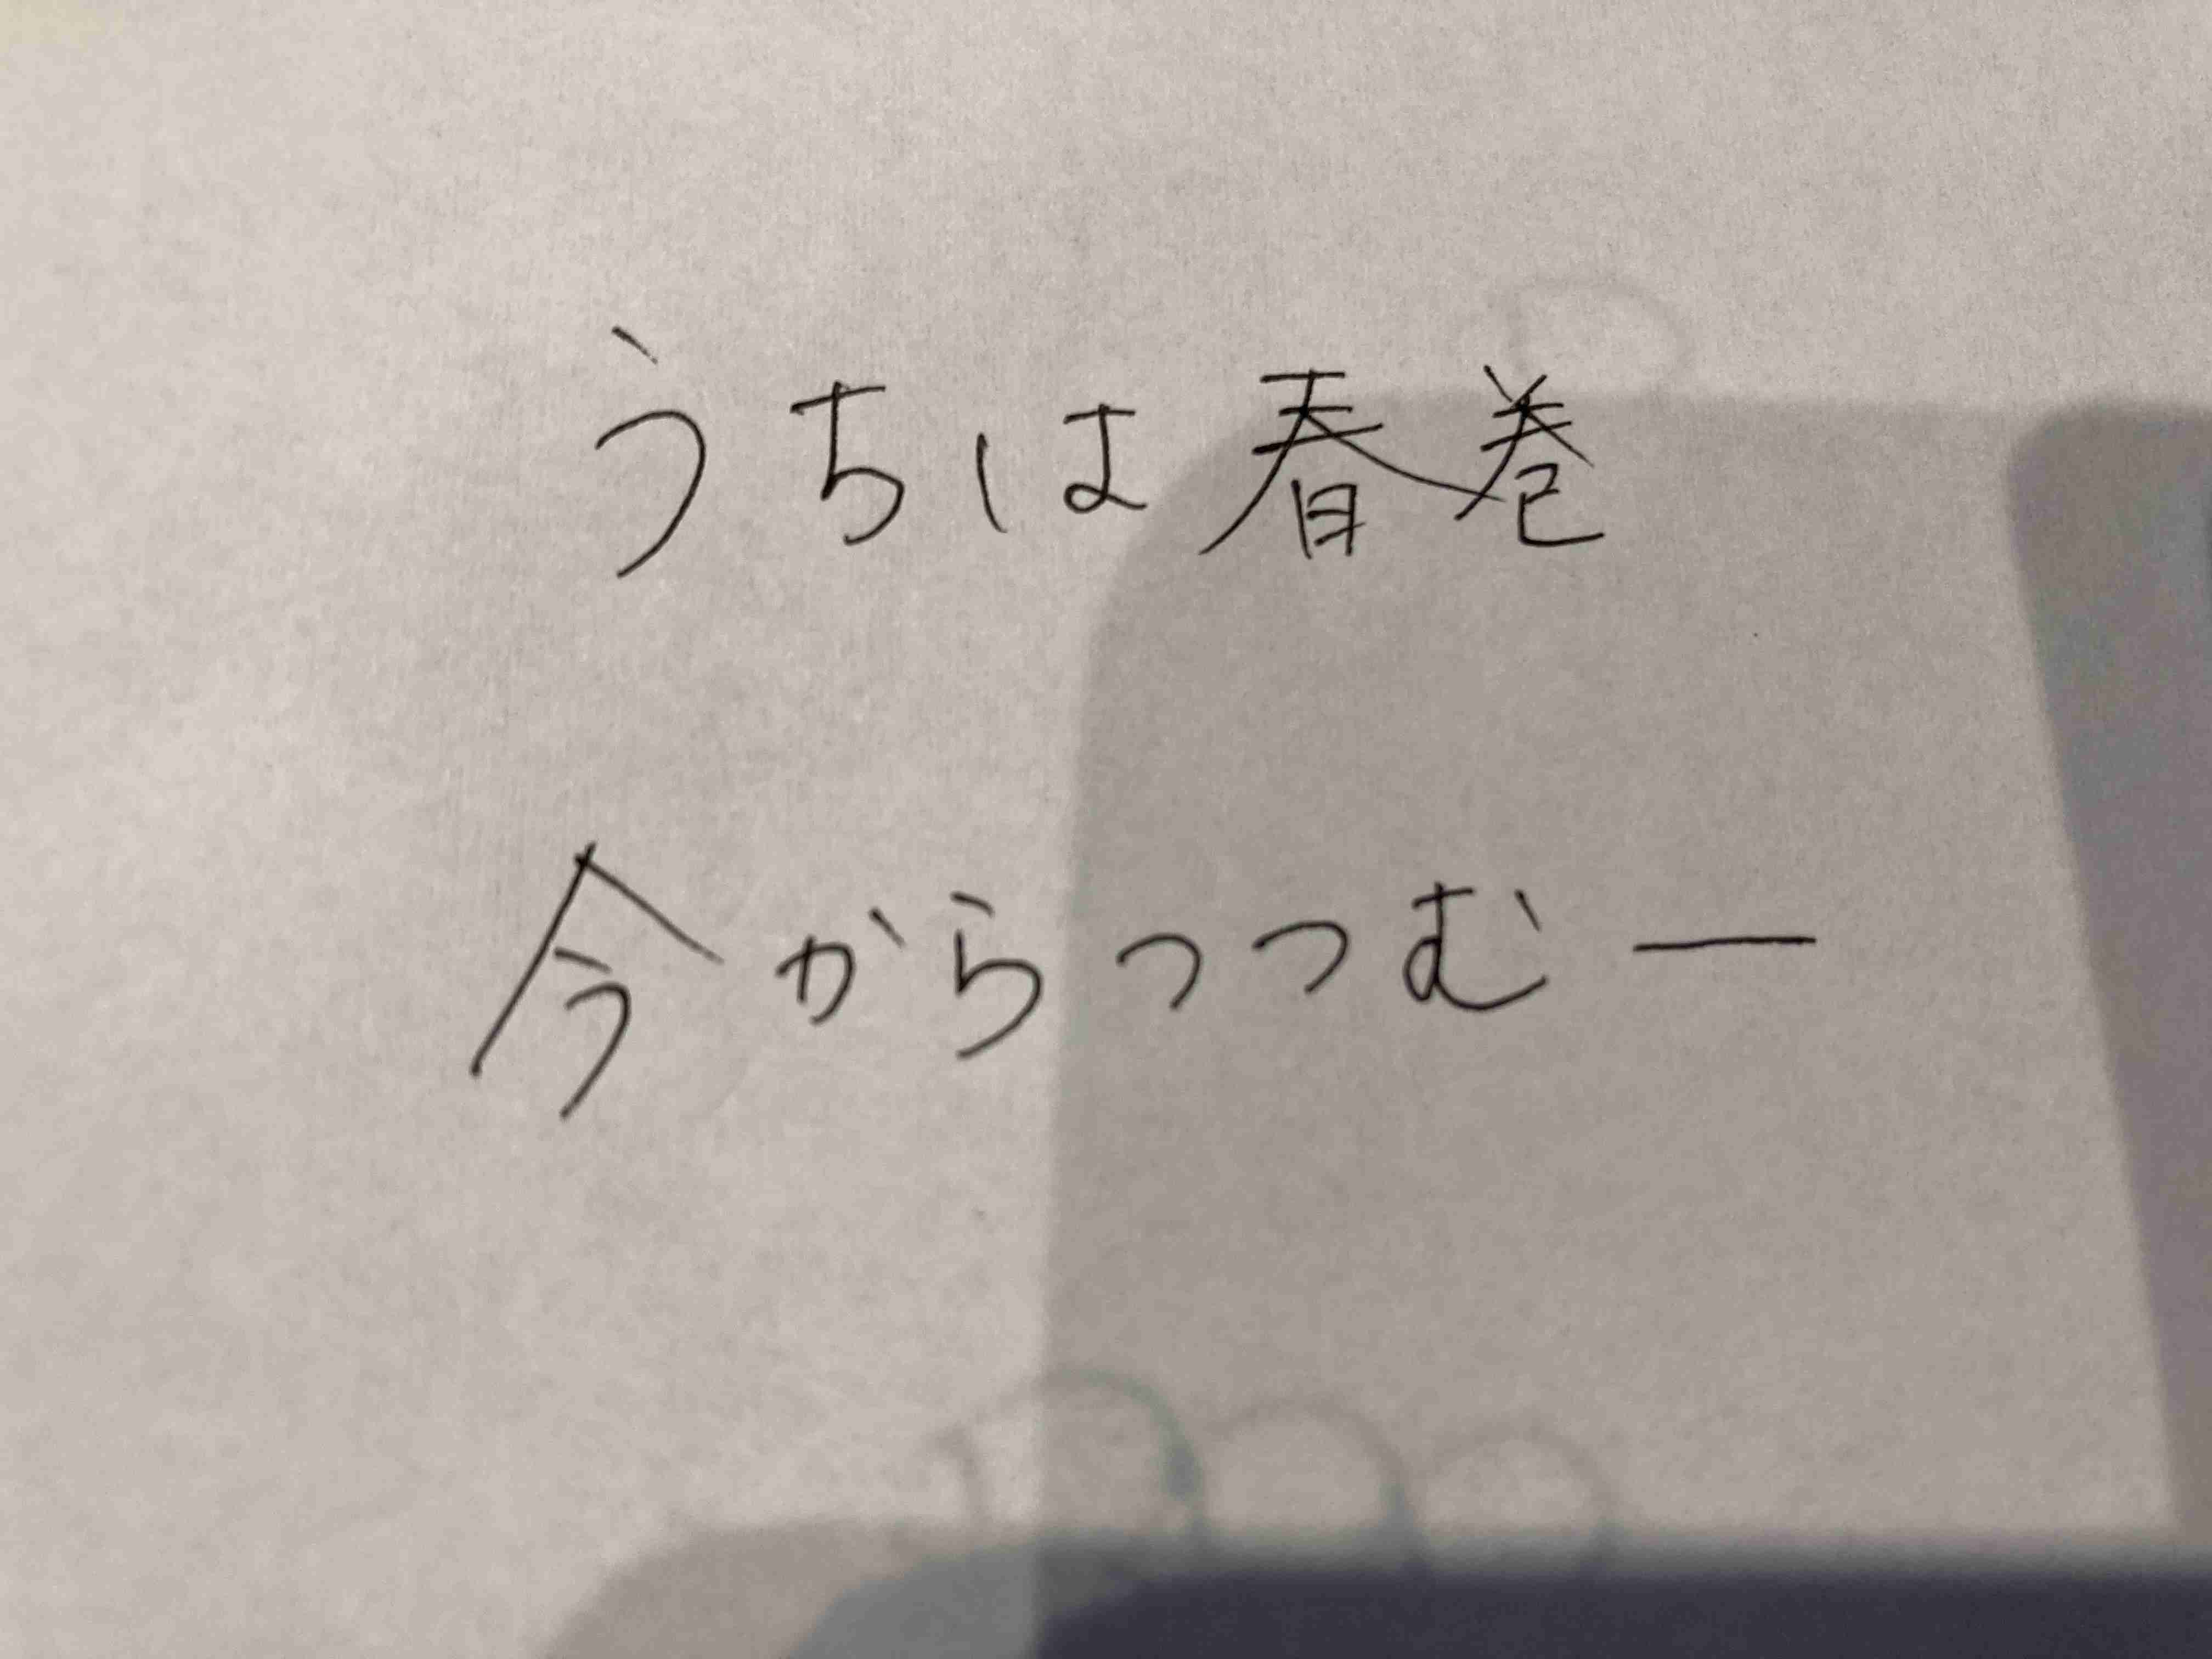 うちは春巻
今からつつむー